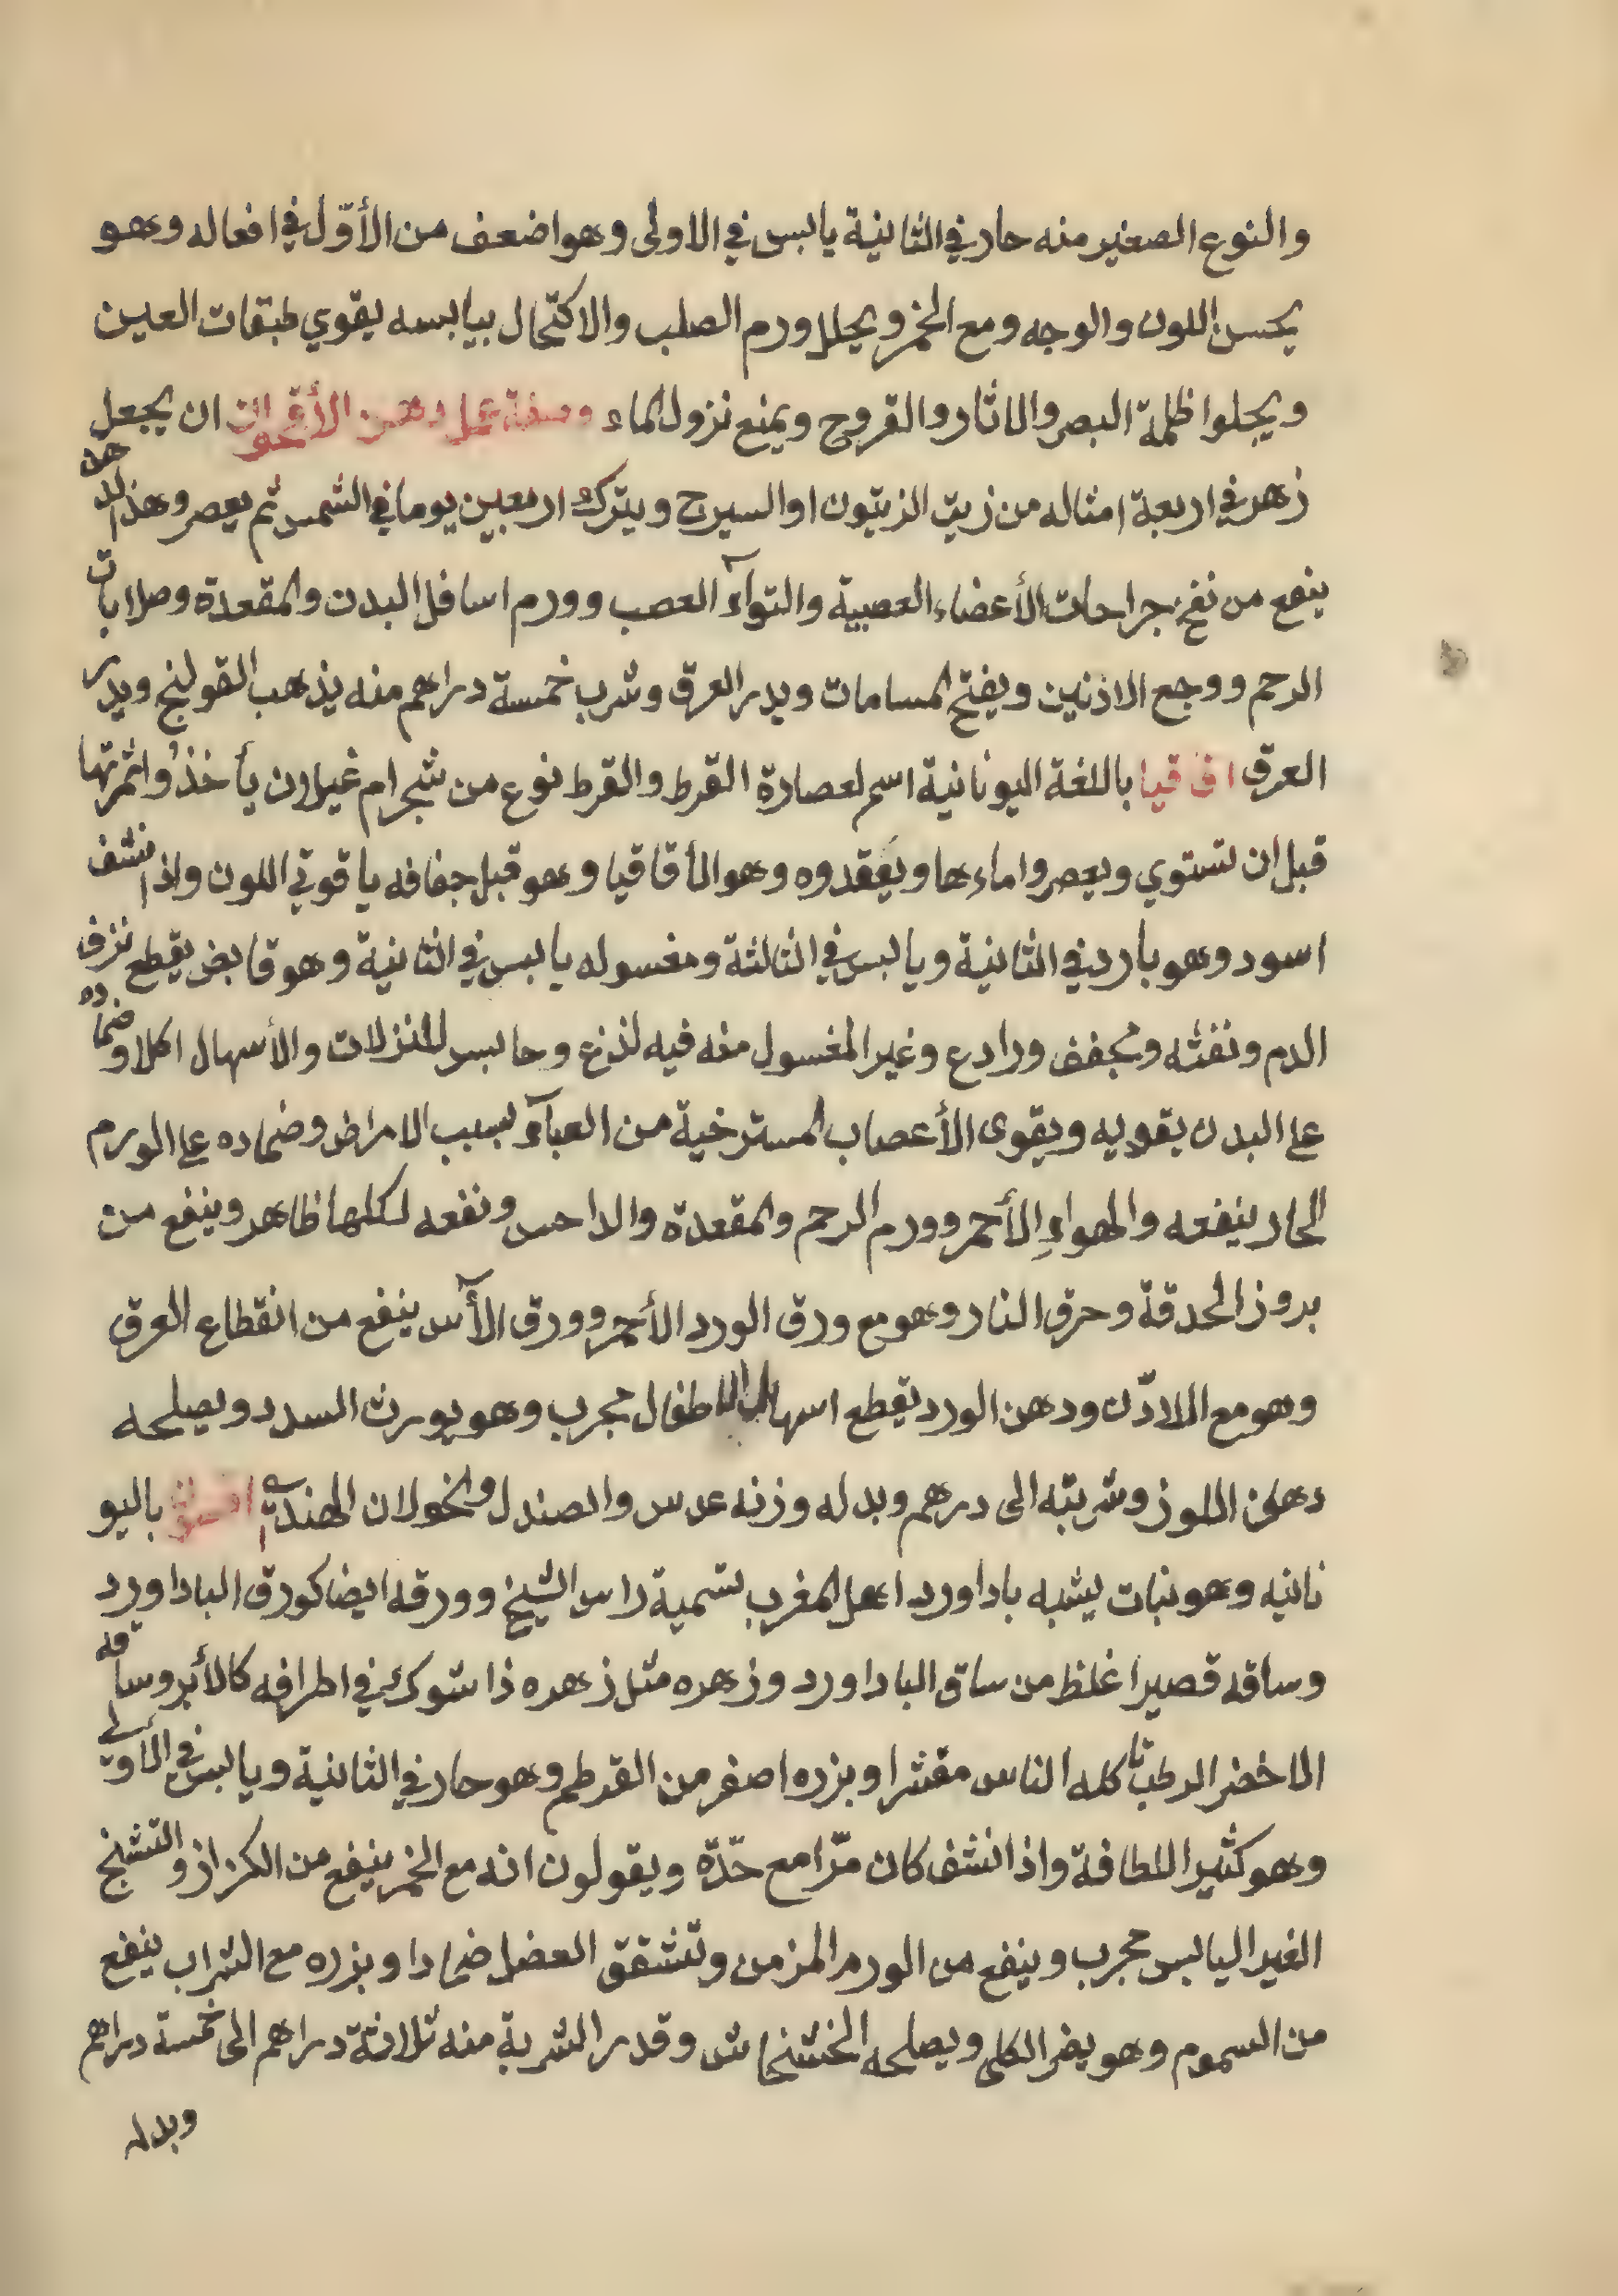 والنوع الصغير منه حار في الثانية يابس في الاولى وهو اضعف من الأوّل في افعاله وهو
يحسن اللون والوجه ومع الخمر ويحلل ورم الصلب والاكتحال بيابسه يقوي طبقات العين
ويجلوا ظلمة البصر والاثار والقروح ويمنع نزول الماء وصفة عمل دهن الأقحوان ان يجعل
زهر في اربعة امثاله من زيت الزيتون او السيرج ويترك اربعين يوما في الشمس ثم يعصر وهذا الدهن
ينفع من نفخ جراحات الأعضاء العصبية والتوآء العصب وورم اسافل البدن والمقعدة وصلابات
الرحم ووجع الاذنين ويفتح المسامات ويدر العرق وشرب خمسة دراهم منه يذهب القولنج ويدر
العرق اقاقيا باللغة اليونانية اسم لعصارة القرط والقرط نوع من شجر ام غيلان يأخذُوا ثمرتها
قبل ان تستوي ويعصروا ماءها ويعقدوه وهو الأقاقيا وهو قبل جفافه ياقوتي اللون واذا نشف
اسود وهو بارد في الثانية ويابس في الثالثة ومغسوله يابس في الثانية وهو قابض يقطع نزف
الدم ونفثه ومجفف ورادع وغير المغسول منه فيه لذع وحابس للنزلات والأسهال اكلا وضماده
على البدن يقويه ويقوى الأعصاب المسترخية من العبآء بسبب الامراض وضماده على الورم
الحار ينفعه والهواءِ الأحمر وورم الرحم والمقعدة والداحس ونفعه لكلها ظاهر وينفع من
بروز الحدقة وحرق النار وهو مع ورق الورد الأحمر وورق الآس ينفع من انقطاع العرق
وهو مع اللادّن ودهن الورد يقطع اسهال الاطفال مجرب وهو يورث السدد ويصلحه
دهن اللوز وشربته الى درهم وبدله وزنه عدس والصندل والخولان الهندي باليو
نانيه وهو نبات يشبه باداورد اهل المغرب تسمية راس الشيخ وورقه ايضا كورق الباداورد
وساقه قصير اغلظ من ساق الباداورد وزهره مثل زهره ذا شوك في اطرافه كالأبر وساقه
الاخضر الرطب تاكله الناس مقشرا وبزره اصغر من القرطم وهو حار في الثانية ويابس في الأولى
وهو كثير اللطافة واذا نشف كان مرّا مع حدّة ويقولون انه مع الخمر ينفع من الكزاز والتشنج
الغير اليابس مجرب وينفع من الورم المزمن وتشقق العضل ضمادا وبزره مع الشراب ينفع
من السموم وهو يضر الكلى ويصلحه الخشخاش وقدر الشربة منه ثلاثة دراهم الى خمسة دراهم
وبدله